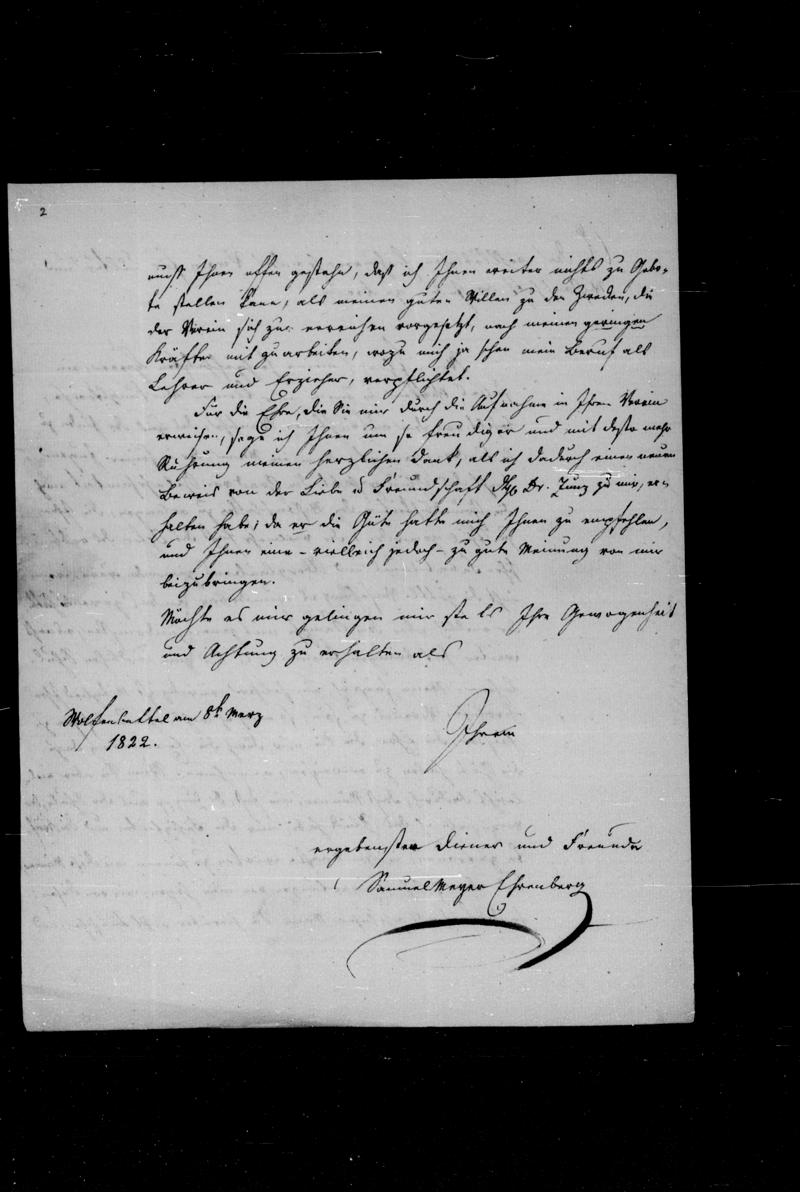 2
muß Ihnen offen gestehe, daß ich Ihnen weiter nichts zu Gebo-
te stellen kann, als meinen guten Willen zu den Zwecken, die
der Verein sich zu erreichen vorgesetzt, nach meinen geringen
Kräften mit zu arbeiten, wozu mich ja schon mein Beruf als
Lehrer und Erzieher, verpflichtet.
Für die Ehre, die Sie mir durch die Aufnahme in Ihren Verein
erweisen, sage ich Ihnen um so freudiger und mit desto mehr
Rührung meinen herzlichen Dank, als ich dadurch einen neuen
Beweis von der Liebe u Freundschaft des Dr. Zunz zu mir, er-
halten habe; da er die Güte hatte mich Ihnen zu empfehlen,
und Ihnen eine – vielleich jedoch – zu gute Meinung von mir
beizubringen.
Möchte es mir gelingen mir stets Ihre Gewogenheit
und Achtung zu erhalten als
Wolfenbüttel am 8t Merz
1822.
Ihrem
ergebensten Diener und Freunde
Samuel Meyer Ehrenberg